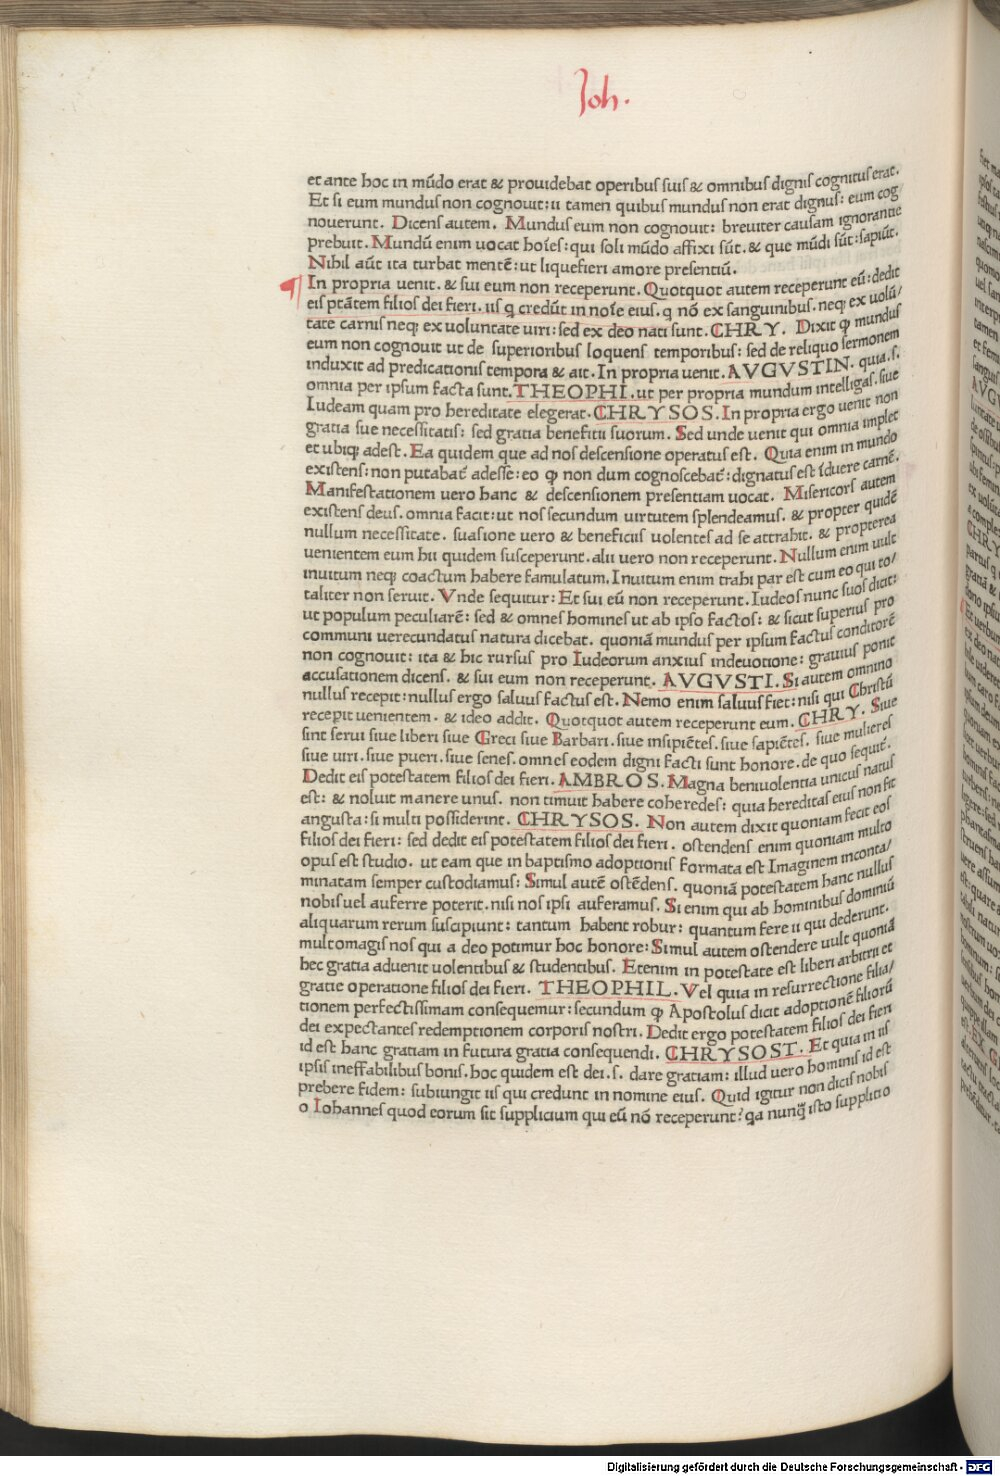 Joh.
et ante hoc in mūdo erat & prouidebat operibus suis & omnibus dignis cognitus erat.
Et si eum mundus non cognouit: ii tamen quibus mundus non erat dignus: eum cog
nouerunt. Dicens autem. Mundus eum non cognouit: breuiter causam ignorantie
prebuit. Mundū enim uocat hoīes: qui soli mūdo affixi sūt. & que mūdi sūt: sapiūt.
Nihil aūt ita turbat mentē: ut liquefieri amore presentiū.
¶ In propria uenit. & sui eum non receperunt. Quotquot autem receperunt eū: dedit
eis ptātem filios dei fieri. iis q credūt in noīe eius. q nō ex sanguinibus. neq; ex uolū/
tate carnis neq; ex uoluntate uiri: sed ex deo nati sunt. CHRY. Dixit ꝙ mundus
eum non cognouit ut de superioribus loquens temporibus: sed de reliquo sermonem
induxit ad predicationis tempora & ait. In propria uenit. AVGVSTIN. quia .s.
omnia per ipsum facta sunt. THEOPHI. ut per propria mundum intelligas. siue
Iudeam quam pro hereditate elegerat. CHRYSOS. In propria ergo uenit non
gratia sue necessitatis: sed gratia benefitii suorum. Sed unde uenit qui omnia implet
et ubiq; adest. Ea quidem que ad nos descensione operatus est. Quia enim in mundo
existens: non putabat᷑ adesse: eo ꝙ non dum cognoscebat᷑: dignatus est īduere carnē.
Manifestationem uero hanc & descensionem presentiam uocat. Misericors autem
existens deus. omnia facit: ut nos secundum uirtutem splendeamus. & propter quidē
nullum necessitate. suasione uero & beneficiis uolentes ad se attrahit. & propterea
uenientem eum hii quidem susceperunt. alii uero non receperunt. Nullum enim uult
inuitum neq; coactum habere famulatum. Inuitum enim trahi par est cum eo qui to/
taliter non seruit. Vnde sequitur: Et sui eū non receperunt. Iudeos nunc suos dicit:
ut populum peculiarē: sed & omnes homines ut ab ipso factos: & sicut superius pro
communi uerecundatus natura dicebat. quoniā mundus per ipsum factus conditorē
non cognouit: ita & hic rursus pro Iudeorum anxius indeuotione: grauius ponit
accusationem dicens. & sui eum non receperunt. AVGVSTI. Si autem omnino
nullus recepit: nullus ergo saluus factus est. Nemo enim saluus fiet: nisi qui Christū
recepit uenientem. & ideo addit. Quotquot autem receperunt eum. CHRY. Siue
sint serui siue liberi siue Greci siue Barbari. siue insipiētes. siue sapiētes. siue mulieres
siue uiri. siue pueri. siue senes. omnes eodem digni facti sunt honore. de quo sequit᷑.
Dedit eis potestatem filios dei fieri. AMBROS. Magna beniuolentia unicus natus
est: & noluit manere unus. non timuit habere coheredes: quia hereditas eius non fit
angusta: si multi possiderint. CHRYSOS. Non autem dixit quoniam fecit eos
filios dei fieri: sed dedit eis potestatem filios dei fieri. ostendens enim quoniam multo
opus est studio. ut eam que in baptismo adoptionis formata est Imaginem inconta/
minatam semper custodiamus: Simul autē ostēdens. quoniā potestatem hanc nullus
nobis uel auferre poterit. nisi nos ipsi auferamus. Si enim qui ab hominibus dominiū
aliquarum rerum suscipiunt: tantum habent robur: quantum fere ii qui dederunt.
multomagis nos qui a deo potimur hoc honore: Simul autem ostendere uult quoniā
hec gratia aduenit uolentibus & studentibus. Etenim in potestate est liberi arbitrii et
gratie operatione filios dei fieri. THEOPHIL. Vel quia in resurrectione filia/
tionem perfectissimam consequemur: secundum ꝙ Apostolus dicit adoptionē filiorū
dei expectantes redemptionem corporis nostri. Dedit ergo potestatem filios dei fieri
id est hanc gratiam in futura gratia consequendi. CHRYSOST. Et quia in iis
ipsis ineffabilibus bonis. hoc quidem est dei .s. dare gratiam: illud uero hominis id est
prebere fidem: subiungit iis qui credunt in nomine eius. Quid igitur non dicis nobis
o Iohannes quod eorum sit supplicium qui eū nō receperunt? qa nunq̄ isto supplitio
Digitalisierung gefördert durch die Deutsche Forschungsgemeinschaft - DFG